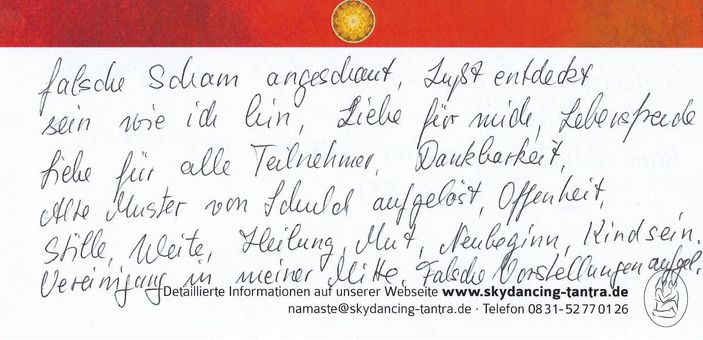 falsche Scham angeschaut, Lußt entdeckt
sein wie ich bin, Liebe für mich, Lebensfreude
Liebe für alle Teilnehmer, Dankbarkeit,
Alte Muster von Schuld aufgelöst, Offenheit,
Stille, Weite, Heilung, Mut, Neubeginn, Kindsein.
Vereinigung in meiner Mitte. Falsche Vorstellungen aufgel.
Detaillierte Informationen auf unserer Webseite www.skydancing-tantra.de
namaste@skydancing-tantra.de · Telefon 08 31- 52 77 01 26